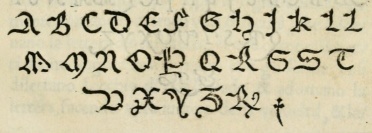 A B C D E F G H I K L L
M M N O P Q R S S T
V X Y Z R